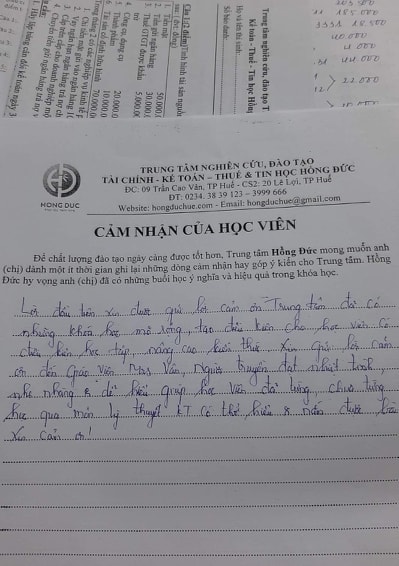 Trung tâm nghiên cứu, đào T
Kế toán - Thuế - Tin học Hồng
Họ và tên thí sinh:
Số báo danh:
Câu 1:(2 điểm)
1. Tiền mặt
50.000
2. Tiền gửi ngân hàng
30.000
3. Thuế GTGT được khấu trừ
5.000
4. Công cụ, dụng cụ
5. Thành phẩm
20.000
10.000
22.000
HONG DUC
TRUNG TÂM NGHIÊN CỨU, ĐÀO TẠO
TÀI CHÍNH - KẾ TOÁN – THUẾ & TIN HỌC HỒNG ĐỨC
ĐC: 09 Trần Cao Vân, TP Huế - CS2: 20 Lê Lợi, TP Huế
ĐT: 0234. 38 39 123 – 3999 666
Website: hongduchue.com - Email: hongduchue@gmail.com
CẢM NHẬN CỦA HỌC VIÊN
Để chất lượng đào tạo ngày càng được tốt hơn, Trung tâm Hồng Đức mong muốn anh
(chị) dành một ít thời gian ghi lại những dòng cảm nhận hay góp ý kiến cho Trung tâm. Hồng
Đức hy vọng anh (chị) đã có những buổi học ý nghĩa và hiệu quả trong khóa học.
Lời đầu tiên xin được gửi lời cảm ơn Trung tâm đã có
những khóa học mở rộng, tạo điều kiện cho học viên có
điều kiện học tập, nâng cao kiến thức. Xin gửi lời cảm
ơn đến Giáo viên Mss Vân, người truyền đạt nhiệt tình,
nhẹ nhàng & dễ hiểu giúp học viên đã từng, chưa từng
học qua môn lý thuyết KT có thể hiểu & nắm được bài
Xin cảm ơn!